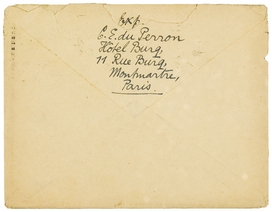 Exp.
C. E. du Perron
Hôtel Burq,
11 Rue Burq,
Montmartre,
Paris.